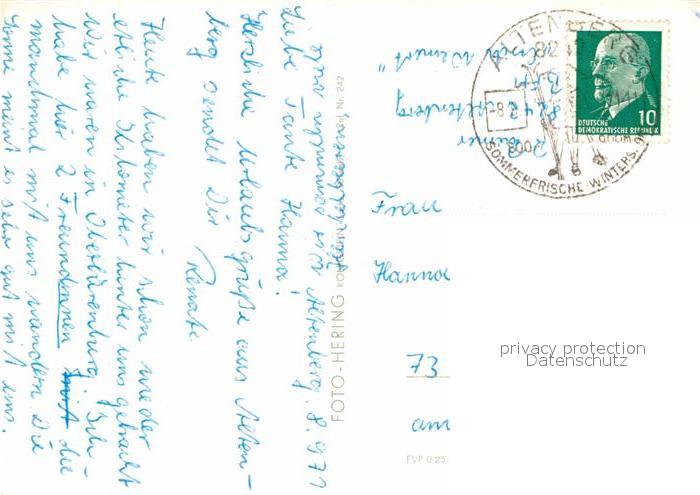 Altenberg, 8.9.71
Liebe Tante Hanna!
Herzliche Urlaubsgrüße aus Alten-
berg sendet Dir
Renate
Heute haben wir schon wieder
etliche Kilometer hinter uns gebracht
Wir waren in Oberbärenburg. Ich
habe hier 2 Freundinnen mit die
manchmal mit uns wandern. Die
Sonne meint es sehr gut mit uns.
FOTO-HERING
Nr. 242
ALTENBERG
8242
SOMMERFRISCHE · WINTERS
DEUTSCHE
DEMOKRATISCHE REPUBLIK
10
8242 Altenberg
Frau
Hanna
73
am
EVP 0,25
privacy protection
Datenschutz